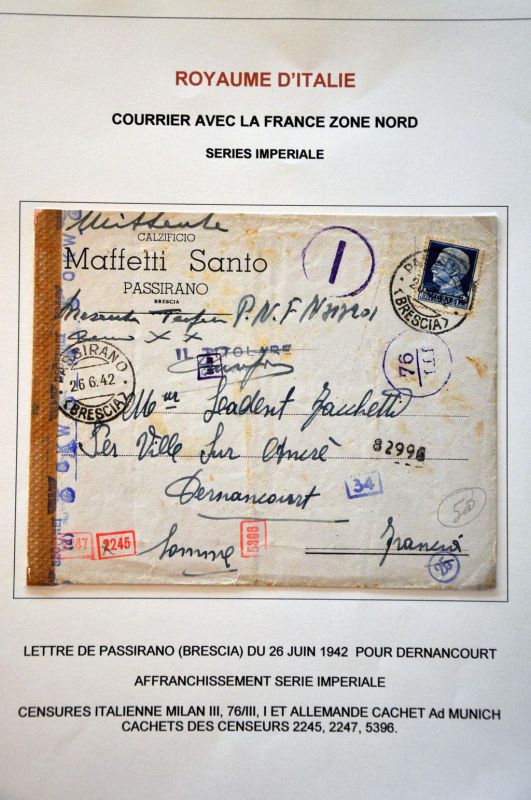 ROYAUME D'ITALIE
COURRIER AVEC LA FRANCE ZONE NORD
SERIES IMPERIALE
Mittente
CALZIFICIO
Maffetti Santo
PASSIRANO
BRESCIA
I
PASSIRANO
(BRESCIA)
P.N.F
XX
IL TITOLARE
76
III
PASSIRANO
26.6.42
(BRESCIA)
Meur Leadent Zachetti
Per Ville Sur Ancrè
82996
Dernancourt
34
50
2245
Somme
5396
26
LETTRE DE PASSIRANO (BRESCIA) DU 26 JUIN 1942 POUR DERNANCOURT
AFFRANCHISSEMENT SERIE IMPERIALE
CENSURES ITALIENNE MILAN III, 76/III, I ET ALLEMANDE CACHET Ad MUNICH
CACHETS DES CENSEURS 2245, 2247, 5396.